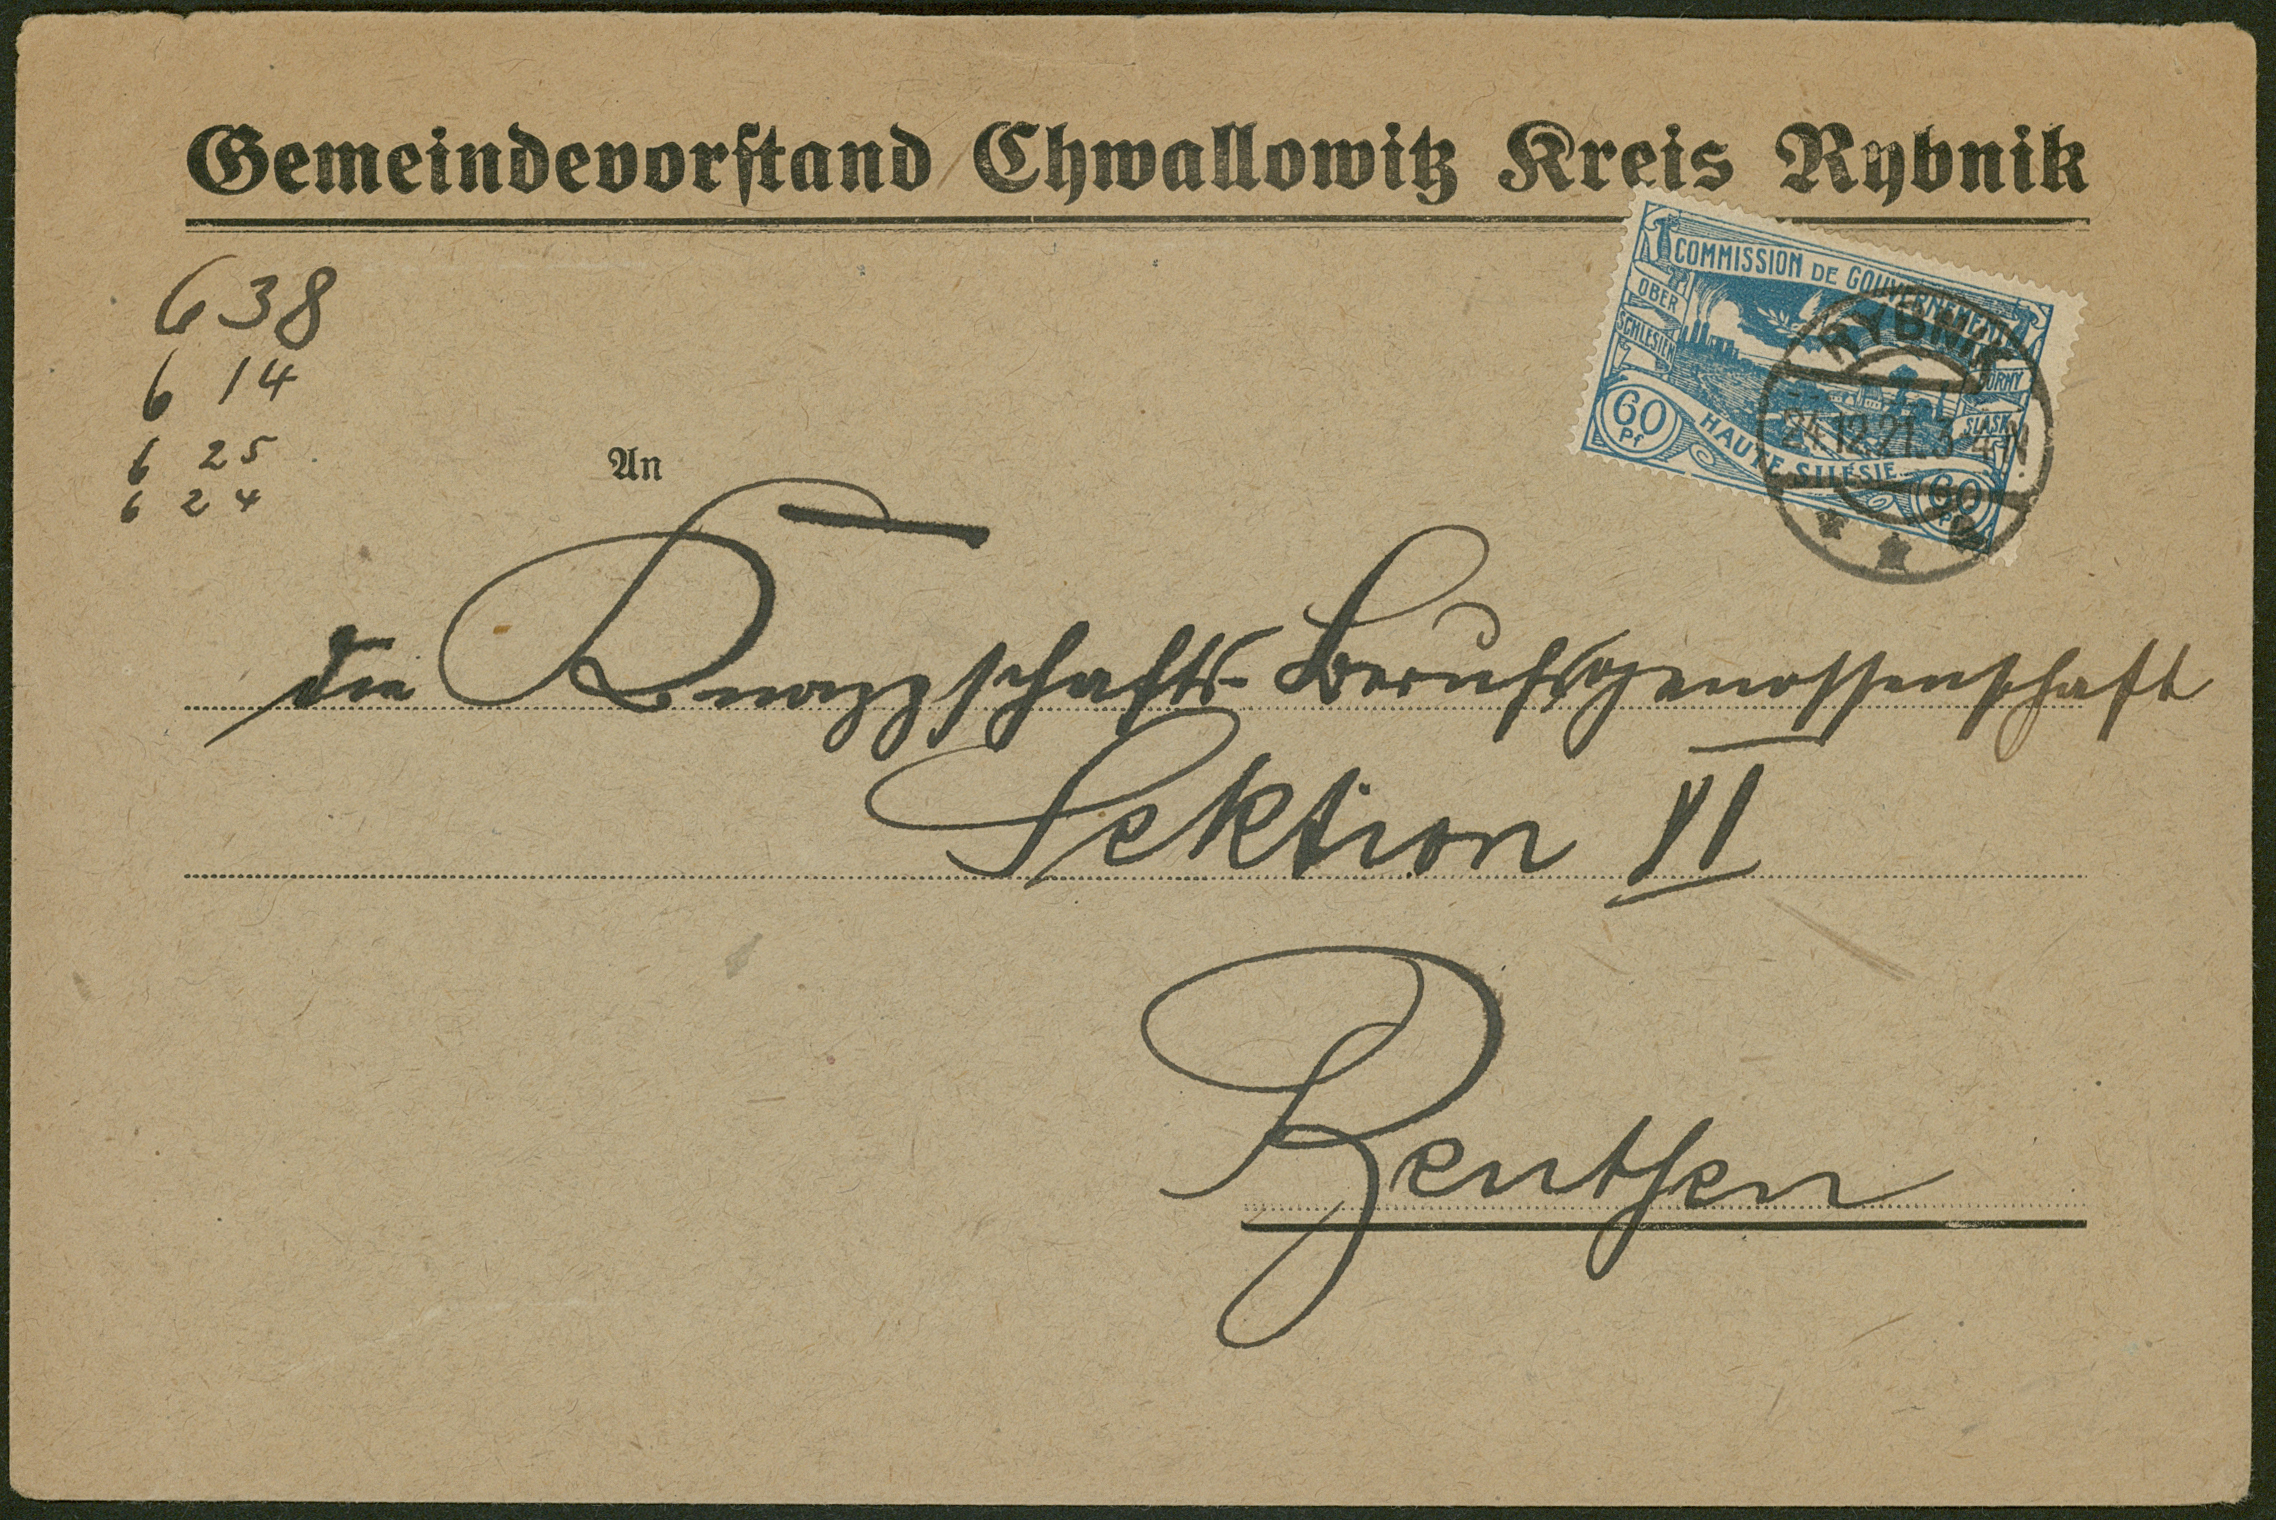 Gemeindevorstand Chwallowitz Kreis Rybnik
638
6 14
6 25
6 24
COMMISSION DE GOUVERNEMENT
OBER
SCHLESIEN
GÓRNY
ŚLĄSK
60
Pf
HAUTE SILÉSIE
60
Pf
RYBNIK
24.12.21.3-4N
An
die Knappschafts-Berufsgenossenschaft
Sektion VI
Beuthen